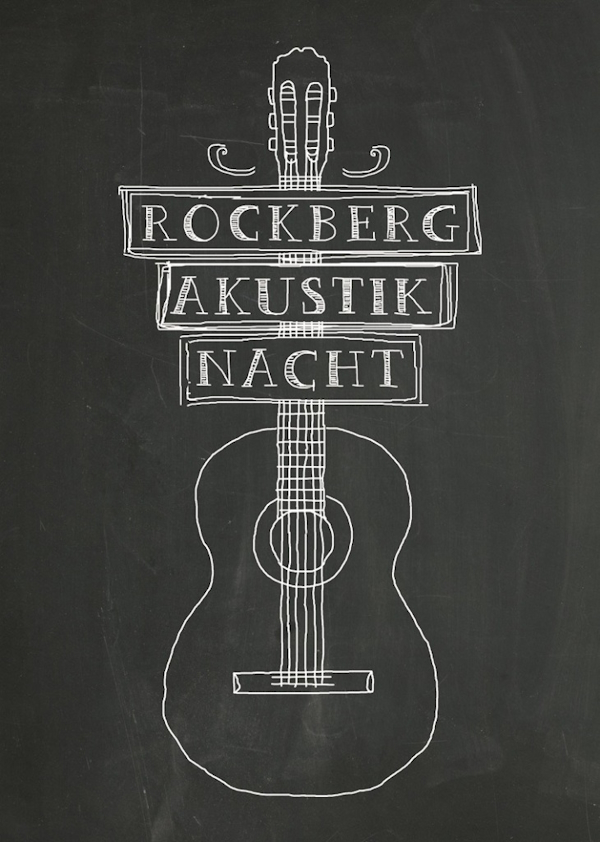 ROCKBERG
AKUSTIK
NACHT